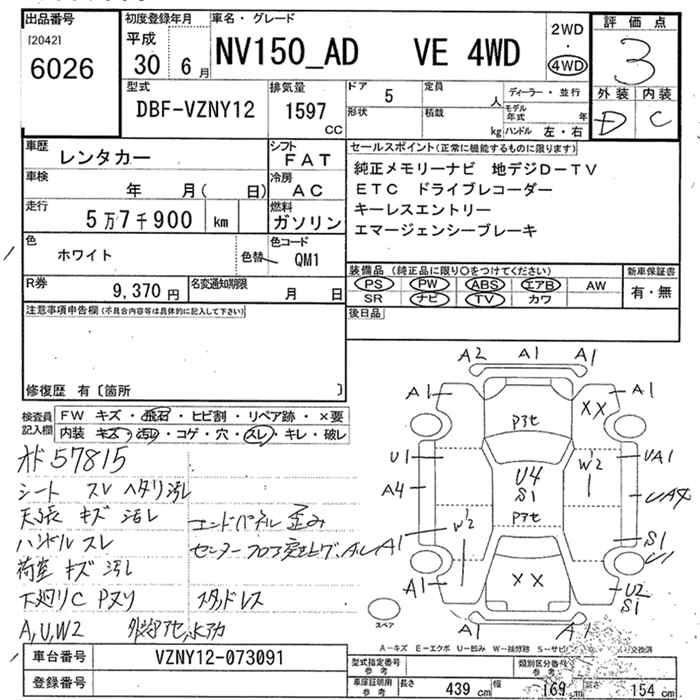 出品番号
[2042]
6026
初度登録年月
平成
30 6 月
車名・グレード
NV150_AD VE 4WD
2WD
・
4WD
評価点
3
外装 内装
D C
型式
DBF-VZNY12
排気量
1597
CC
ドア
5
定員
人
形状
積載
kg
ディーラー・並行
モデル年式 年
ハンドル 左・右
車歴
レンタカー
シフト
FAT
車検
年 月( 日)
冷房
AC
走行
5万7千900 km
燃料
ガソリン
色
ホワイト
色替
色コード
QM1
R券
9,370 円
名変通知期限
月 日
セールスポイント(正常に機能するものに限ります)
純正メモリーナビ 地デジD-TV
ETC ドライブレコーダー
キーレスエントリー
エマージェンシーブレーキ
装備品 (純正品に限り○をつけてください)
PS PW ABS エアB AW
SR ナビ TV カワ
新車保証書
有・無
後日品
注意事項申告欄 (不具合内容等は具体的に記入して下さい)
修復歴 有 〔箇所 〕
検査員
記入欄
FW キズ・飛石・ヒビ割・リペア跡・×要
内装 キズ・汚れ・コゲ・穴・スレ・キレ・破レ
オド 57815
シート スレ ヘタリ 汚レ
天張 キズ 汚レ
ハンドル スレ
荷室 キズ 汚レ
下廻りC Pヌリ
A,U,W2
エンドパネル 歪み
センターフロア突上ゲ
スタッドレス
A2 A1 A1
A1 A1
XX
Pアセ
U1 W2 UA1
U4
S1
A4 UA4
Pアセ
W2
A1 S1
U1
XX
A1 U2
S1
A1 A1
スペア
A-キズ E-エクボ U-凹み W-補修跡 S-サビ
交換済
車台番号
VZNY12-073091
登録番号
型式指定番号
参考
類別区分番号
参考
車庫証明用
参考
長さ 439 cm 幅 169 cm 154 cm